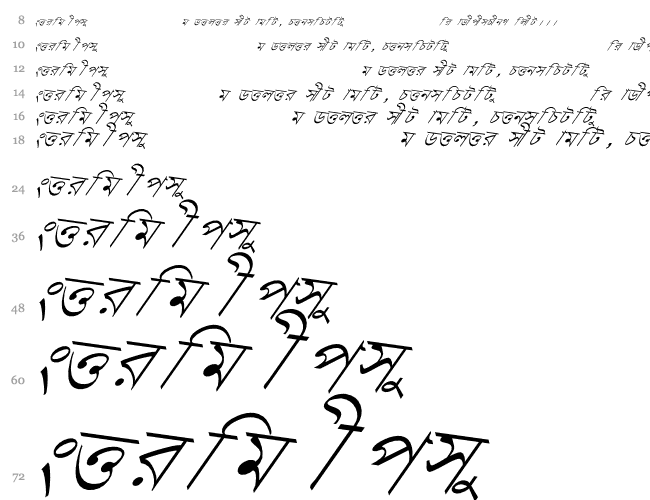 8 ংত্তরমি ীপসু ম ডত্তলত্তর সীট ামিটি, চত্তনসচিটিটু
10 ংত্তরমি ীপসু ম ডত্তলত্তর সীট ামিটি, চত্তনসচিটিটু
12 ংত্তরমি ীপসু ম ডত্তলত্তর সীট ামিটি, চত্তনসচিটিটু
14 ংত্তরমি ীপসু ম ডত্তলত্তর সীট ামিটি, চত্তনসচিটিটু
16 ংত্তরমি ীপসু ম ডত্তলত্তর সীট ামিটি, চত্তনসচিটিটু
18 ংত্তরমি ীপসু ম ডত্তলত্তর সীট ামিটি, চত্ত
24 ংত্তরমি ীপসু
36 ংত্তরমি ীপসু
48 ংত্তরমি ীপসু
60 ংত্তরমি ীপসু
72 ংত্তরমি ীপসু